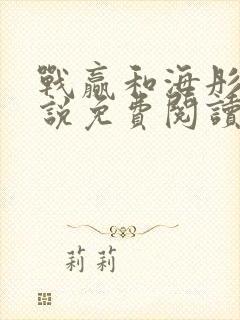 戰贏和海彤
說免費閱讀
莉莉